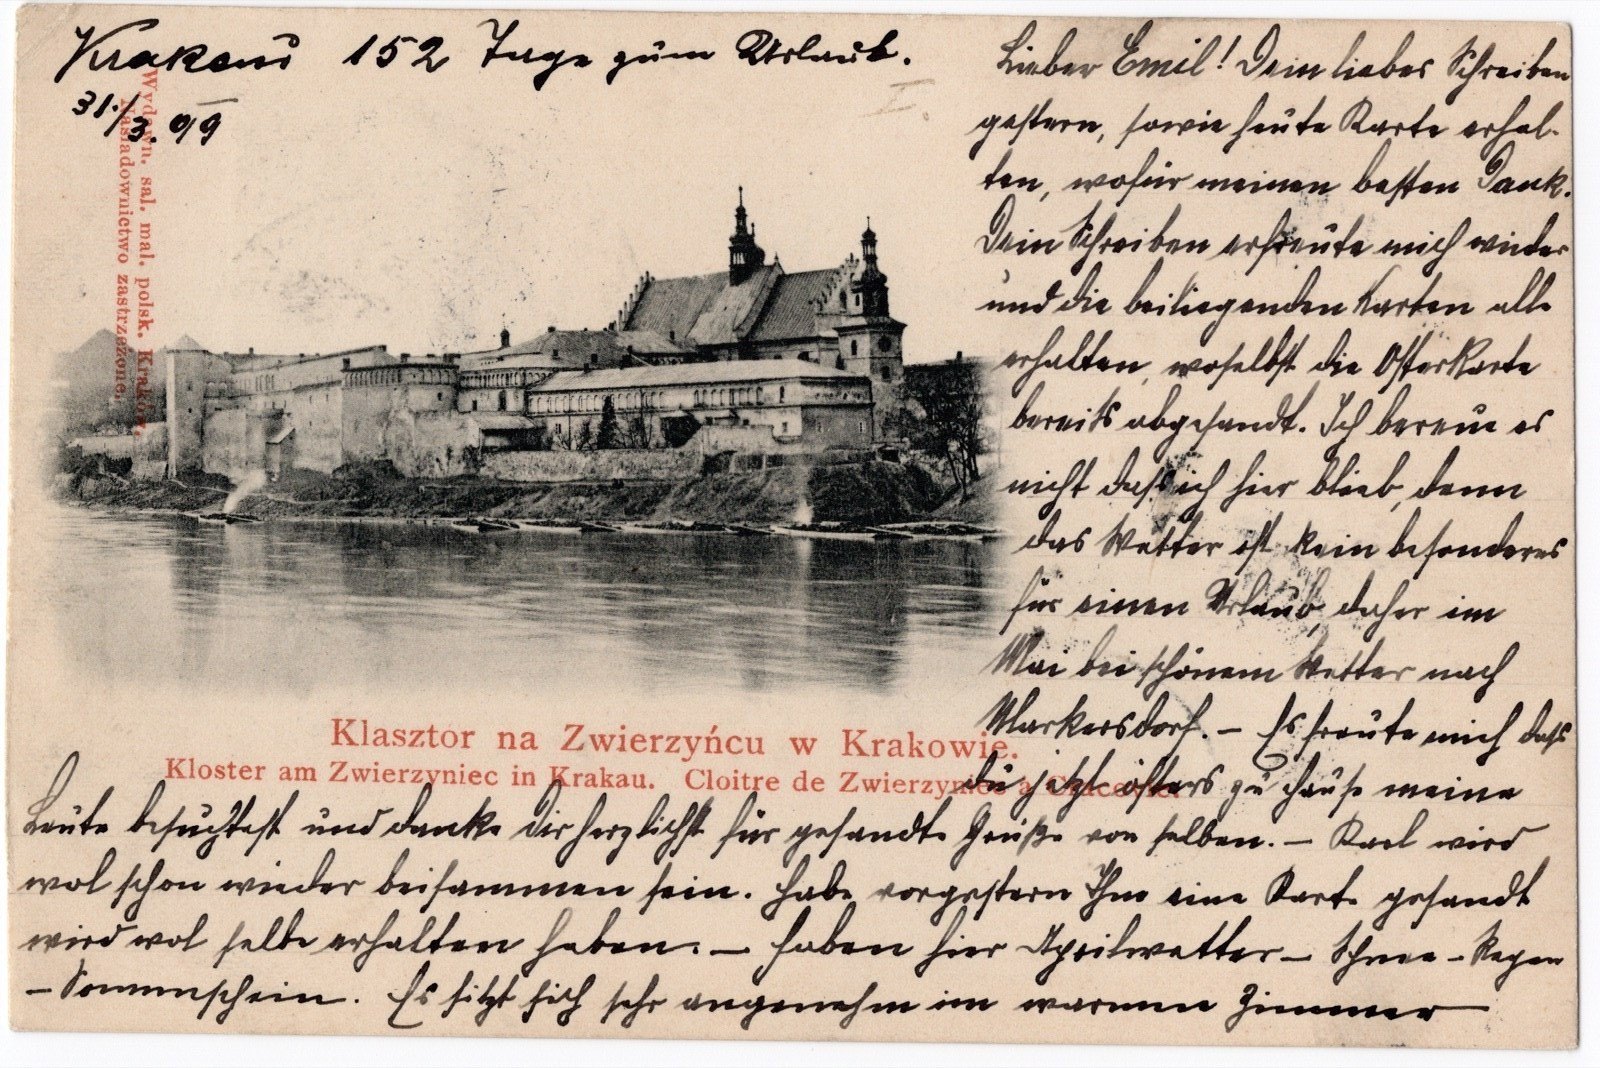 Krakau 152 Tage zum Urlaub.
31./3. 99
I.
Wydawn. sal. mal. polsk. Kraków.
Naśladownictwo zastrzeżone.
Lieber Emil! Dein liebes Schreiben
gestern, sowie heute Karte erhal-
ten, wofür meinen besten Dank.
Dein Schreiben erfreute mich wieder
und die beiliegenden Karten alle
erhalten, woselbst die Osterkarte
bereits abgesandt. Ich bereue es
nicht daß ich hier blieb, denn
das Wetter ist kein besonderes
für einen Urlaub, daher im
Mai bei schönem Wetter nach
Markersdorf. – Es freute mich daß
Klasztor na Zwierzyńcu w Krakowie.
Kloster am Zwierzyniec in Krakau. Cloitre de Zwierzyniec a Cracovie.
du jetzt öfters zu Hause meine
Leute besuchtest und danke dir herzlichst für gesandte Grüße von selben. – Karl wird
wol schon wieder beisammen sein. Habe vorgestern Ihm eine Karte gesandt
wird wol selbe erhalten haben. – Haben hier Aprilwetter – Schnee – Regen
– Sonnenschein. Es sitzt sich sehr angenehm im warmen Zimmer